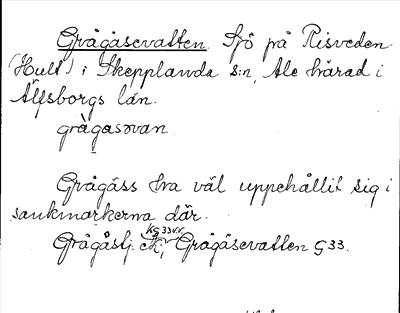 Grågåsevatten. Sjö på Risveden
(Hult) i Skepplanda s:n, Ale härad i
Älfsborgs län.
grågasəvan
Grågäss tra väl uppehållit sig i
sankmarkerna där.
Grågåstj. ek, Grågåsevatten G33.